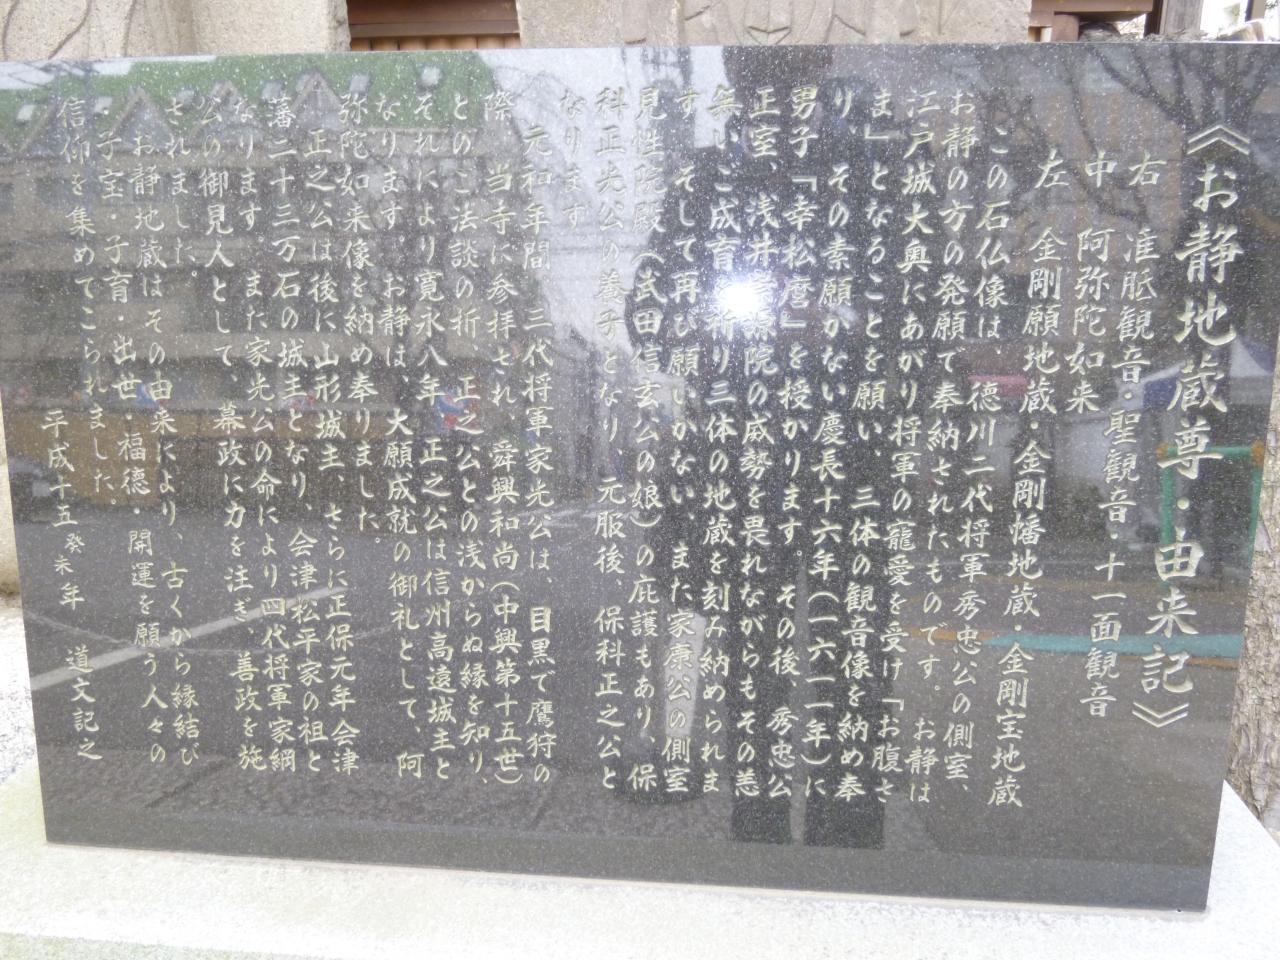 《お静地蔵尊・由来記》
右　准胝観音・聖観音・十一面観音
中　阿弥陀如来
左　金剛願地蔵・金剛幡地蔵・金剛宝地蔵
この石仏像は、徳川二代将軍秀忠公の側室、
お静の方の発願で奉納されたものです。お静は
江戸城大奥にあがり将軍の寵愛を受け「お腹さ
ま」となることを願い、三体の観音像を納め奉
り、その素願かない慶長十六年（一六一一年）に
男子「幸松麿」を授かります。その後　秀忠公
正室、浅井 院の威勢を畏れながらもその恙
無いご成育 祈り三体の地蔵を刻み納められま
す。そして再び願いかない、また家康公の側室
見性院殿（武田信玄公の娘）の庇護もあり、保
科正光公の養子となり、元服後、保科正之公と
なります
元和年間　三代将軍家光公は、目黒で鷹狩の
際　当寺に参拝され、舜興和尚（中興第十五世）
とのご法談の折　正之公との浅からぬ縁を知り、
それにより寛永八年　正之公は信州高遠城主と
なります。お静は、大願成就の御礼として、阿
弥陀如来像を納め奉りました
正之公は後に山形城主、さらに正保元年会津
藩二十三万石の城主となり、会津松平家の祖と
なります。また家光公の命により四代将軍家綱
公の御見人として、幕政に力を注ぎ、善政を施
されました。
お静地蔵はその由来により、古くから縁結び
・子宝・子育・出世・福徳・開運を願う人々の
信仰を集めてこられました。
平成十五癸未年　道文記之